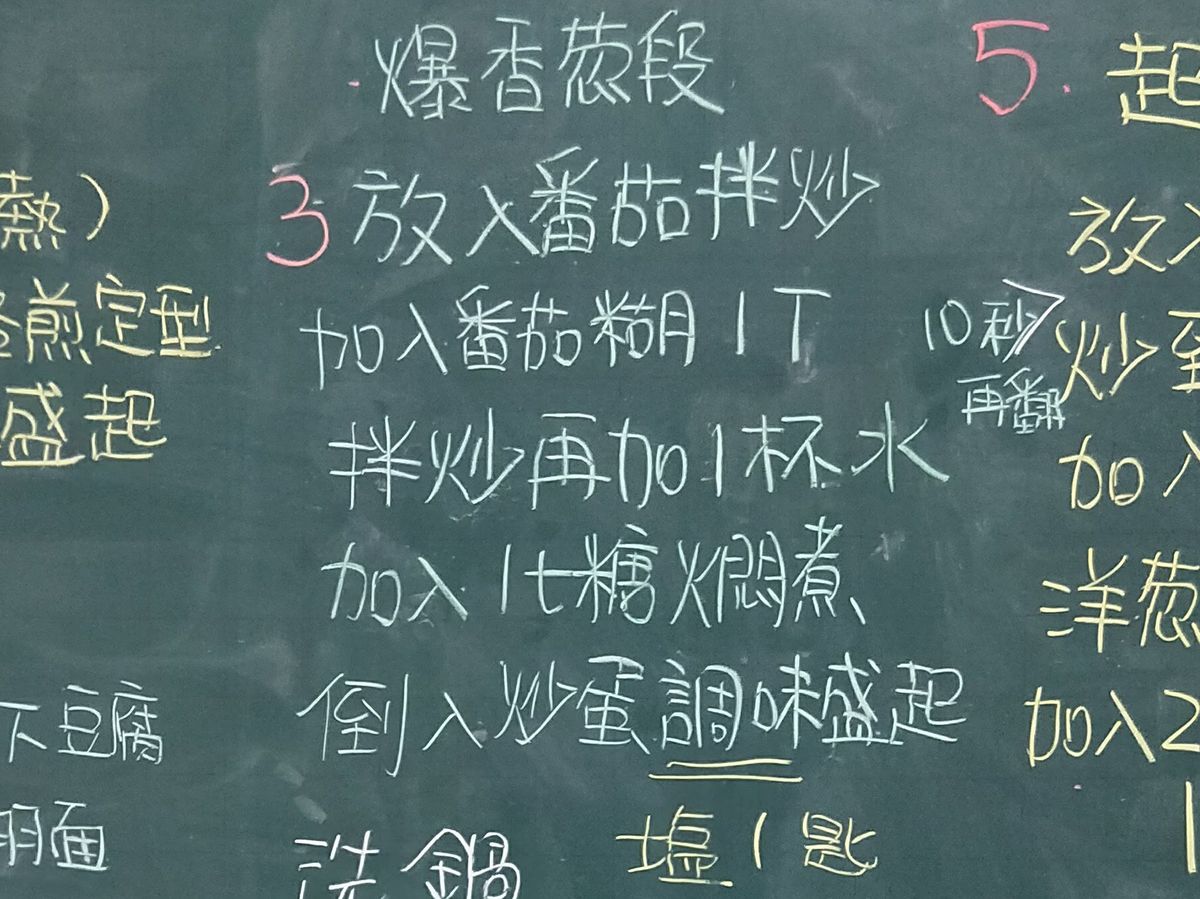 熱)
煎定型
盛起
下豆腐
面
爆香葱段
3 放入番茄拌炒
加入番茄糊1T
拌炒再加1杯水
加入1t糖燜煮
倒入炒蛋調味盛起
塩1匙
洗鍋
10秒
再翻
5. 起
放入
炒至
加入
洋葱
加入2
1